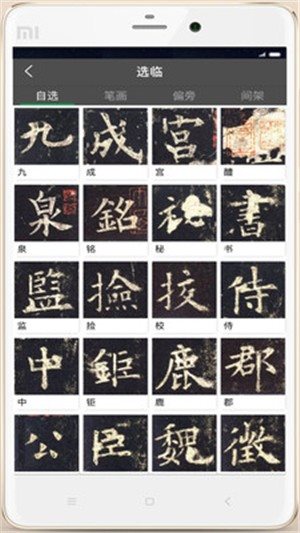 MI
选临
自选 笔画 偏旁 间架
九 成 宫
九 成 宫 醴
泉 銘 秘 書
泉 铭 秘 书
監 撿 挍 侍
监 捡 校 侍
中 鉅 鹿 郡
中 钜 鹿 郡
公 臣 魏 徵